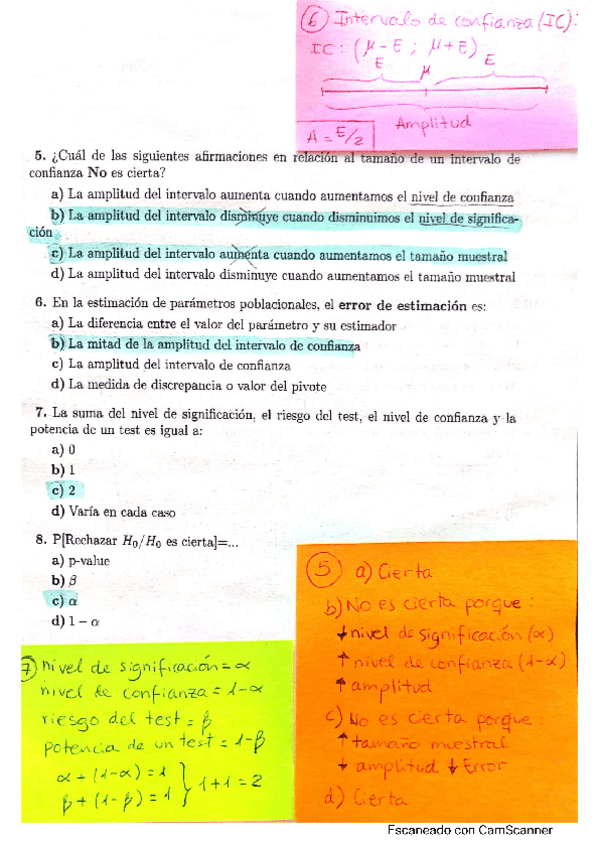 6 Intervalo de confianza (IC):
IC: (μ-E ; μ+E)
E
E
μ
Amplitud
A = E/2
5. ¿Cuál de las siguientes afirmaciones en relación al tamaño de un intervalo de
confianza No es cierta?
a) La amplitud del intervalo aumenta cuando aumentamos el nivel de confianza
b) La amplitud del intervalo disminuye cuando disminuimos el nivel de significa-
ción
c) La amplitud del intervalo aumenta cuando aumentamos el tamaño muestral
d) La amplitud del intervalo disminuye cuando aumentamos el tamaño muestral
6. En la estimación de parámetros poblacionales, el error de estimación es:
a) La diferencia entre el valor del parámetro y su estimador
b) La mitad de la amplitud del intervalo de confianza
c) La amplitud del intervalo de confianza
d) La medida de discrepancia o valor del pivote
7. La suma del nivel de significación, el riesgo del test, el nivel de confianza y la
potencia de un test es igual a:
a) 0
b) 1
c) 2
d) Varía en cada caso
8. P[Rechazar H₀/H₀ es cierta]=...
a) p-value
b) β
c) α
d) 1 − α
5 a) Cierta
b) No es cierta porque:
↓ nivel de significación (α)
↑ nivel de confianza (1-α)
↑ amplitud
c) No es cierta porque:
↑ tamaño muestral
↓ amplitud ↓ Error
d) Cierta
7 nivel de significación = α
nivel de confianza = 1-α
riesgo del test = β
potencia de un test = 1-β
α + (1-α) = 1
β + (1-β) = 1 } 1+1 = 2
Escaneado con CamScanner